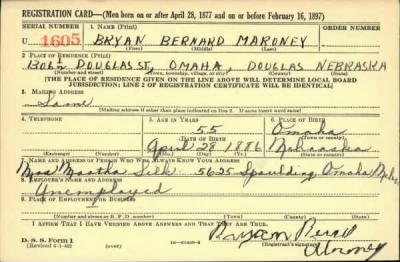 REGISTRATION CARD—(Men born on or after April 28, 1877 and on or before February 16, 1897)
SERIAL NUMBER 1. NAME (Print) ORDER NUMBER
U 1605 BRYAN BERNARD MARONEY
(First) (Middle) (Last)
2. PLACE OF RESIDENCE (Print)
1306½ DOUGLAS ST, OMAHA, DOUGLAS NEBRASKA
(Number and street) (Town, township, village, or city) (County) (State)
[THE PLACE OF RESIDENCE GIVEN ON THE LINE ABOVE WILL DETERMINE LOCAL BOARD
JURISDICTION; LINE 2 OF REGISTRATION CERTIFICATE WILL BE IDENTICAL]
3. MAILING ADDRESS
Same
[Mailing address if other than place indicated on line 2. If same insert word same]
4. TELEPHONE 5. AGE IN YEARS 6. PLACE OF BIRTH
55 Omaha
DATE OF BIRTH (Town or county)
April 28 1886 Nebraska
(Exchange) (Number) (Mo.) (Day) (Yr.) (State or country)
7. NAME AND ADDRESS OF PERSON WHO WILL ALWAYS KNOW YOUR ADDRESS
Mrs Martha Silk 5625 Spaulding Omaha Nebr
8. EMPLOYER'S NAME AND ADDRESS
Unemployed
9. PLACE OF EMPLOYMENT OR BUSINESS
(Number and street or R. F. D. number) (Town) (County) (State)
I AFFIRM THAT I HAVE VERIFIED ABOVE ANSWERS AND THAT THEY ARE TRUE.
D. S. S. Form 1 Bryan Bernard
(Revised 4-1-42) (over) (Registrant's signature)
Maroney